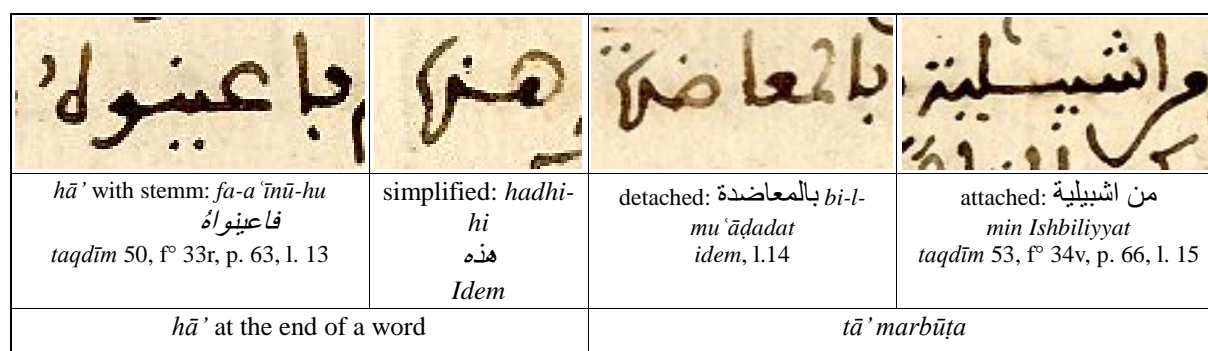 hā’ with stemm: fa-a‘īnū-hu
فاعينواهُ
taqdīm 50, f° 33r, p. 63, l. 13
simplified: hadhi-
hi
هذه
Idem
detached: بالمعاضدة bi-l-
mu‘āḍadat
idem, l.14
attached: من اشبيلية
min Ishbiliyyat
taqdīm 53, f° 34v, p. 66, l. 15
hā’ at the end of a word
tā’ marbūṭa